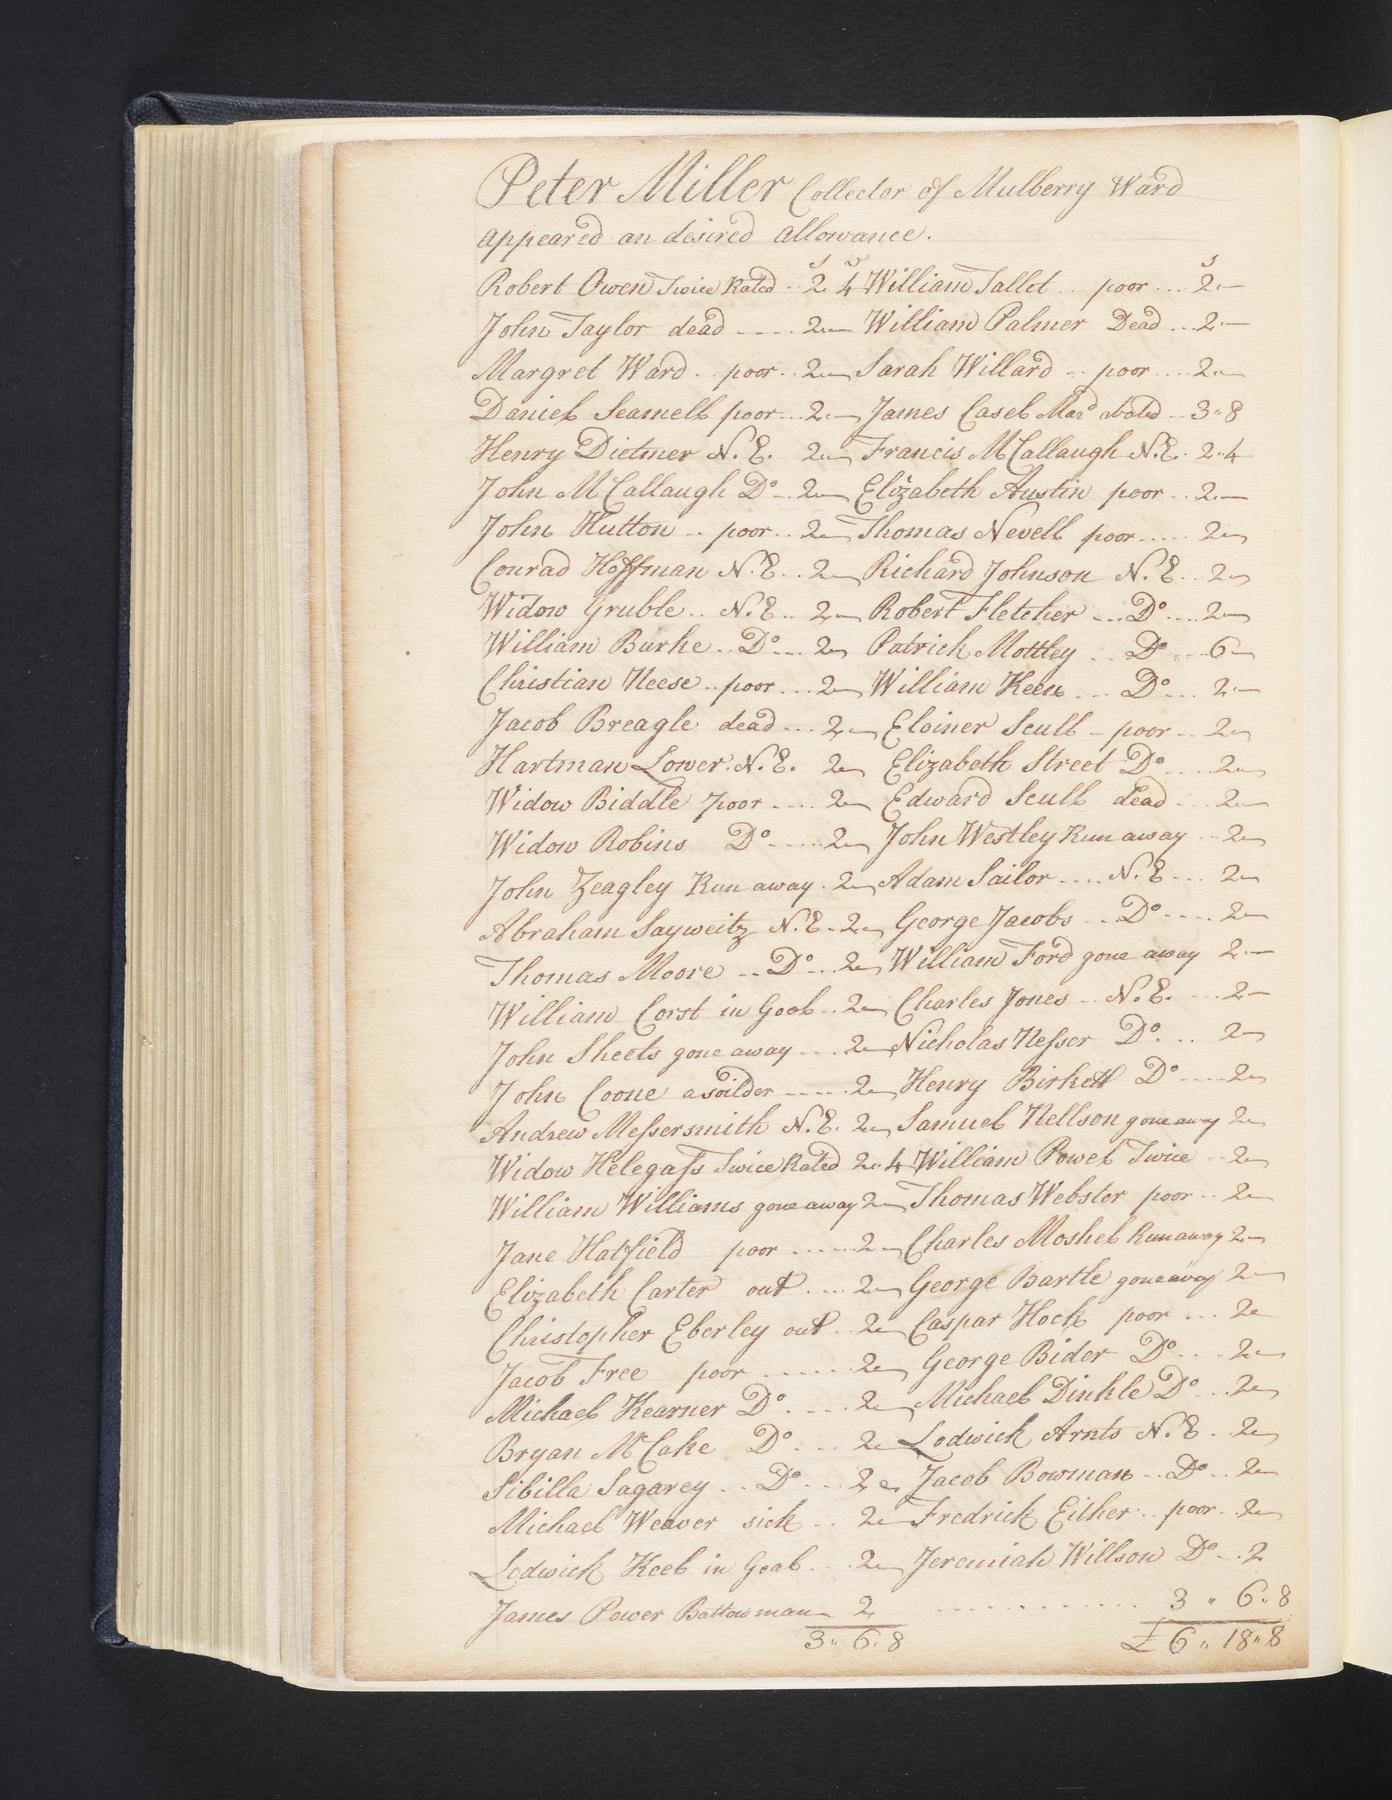 Peter Miller Collector of Mulberry Ward
appeared an desired allowance.
s d s
Robert Owen Twice Rated .. 2. 4 William Tallet .. poor ... 2.—
John Taylor dead ..... 2.— William Palmer Dead ... 2.—
Margret Ward .. poor .. 2.— Sarah Willard .. poor .... 2.—
Daniel Seamell poor ... 2.— James Casel Mard. abated .. 3"8
Henry Dietmer N.E. 2.— Francis McCallaugh N.E. 2.4
John McCallaugh Do .. 2.— Elizabeth Austin poor .. 2.—
John Hutton .. poor .. 2.— Thomas Nevell poor ..... 2.—
Conrad Hoffman N.E. .. 2.— Richard Johnson N.E. .. 2.—
Widow Gruble .. N.E. .. 2.— Robert Fletcher ... Do .... 2.—
William Burke .. Do ... 2.— Patrick Mottley .. Do ... 6.—
Christian Neese .. poor ... 2.— William Keen ... Do ... 2.—
Jacob Breagle dead ... 2.— Eloiner Scull – poor .. 2.—
Hartman Lower N.E. 2.— Elizabeth Street Do .... 2.—
Widow Biddle poor .... 2.— Edward Scull dead ... 2.—
Widow Robins Do ..... 2.— John Westley Run away .. 2.—
John Zeagley Run away . 2.— Adam Sailor .... N.E ... 2.—
Abraham Sayweitz N.E. 2.— George Jacobs .. Do .... 2.—
Thomas Moore .. Do ... 2.— William Ford gone away 2.—
William Corst in Gool .. 2.— Charles Jones .. N.E. ... 2.—
John Sheets gone away .... 2.— Nicholas Nesser Do. ... 2.—
John Coone a soilder ..... 2.— Henry Birkett Do .... 2.—
Andrew Messersmith N.E. 2.— Samuel Nellson gone away 2.—
Widow Helegass Twice Rated 2"4 William Powel Twice .. 2.—
William Williams gone away 2.— Thomas Webster poor .. 2.—
Jane Hatfield poor ..... 2.— Charles Moshel Run away 2.—
Elizabeth Carter out .... 2.— George Bartle gone away 2.—
Christopher Eberley out .. 2.— Caspar Hock poor ... 2.—
Jacob Free poor ...... 2.— George Bider Do ... 2.—
Michael Kearner Do .... 2.— Michael Dinkle Do ... 2.—
Bryan McCake Do .... 2.— Lodwick Arnts N.E. 2.—
Sibilla Sagarey .. Do ... 2.— Jacob Bowman .. Do .. 2.—
Michael Weaver sick .. 2.— Fredrick Either .. poor . 2.—
Lodwick Keel in Goal ... 2.— Jeremiah Willson Do .. 2
James Power — 2 ............ 3 " 6.8
3" 6.8 £ 6 " 18"8